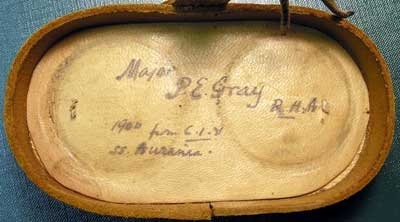 Major
P.E. Gray
R.H.A
1900 from C.I.V
ss. Aurania.